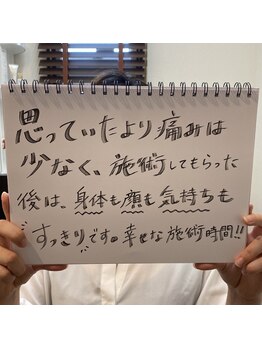 思っていたより痛みは
少なく、施術してもらった
後は、身体も顔も気持ちも
すっきりです。幸せな施術時間!!